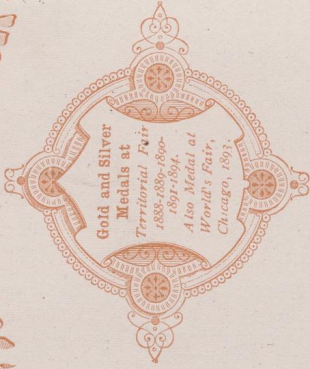 Gold and Silver
Medals at
Territorial Fair
1888-1889-1890-
1891-1894.
Also Medal at
World's Fair,
Chicago, 1893.